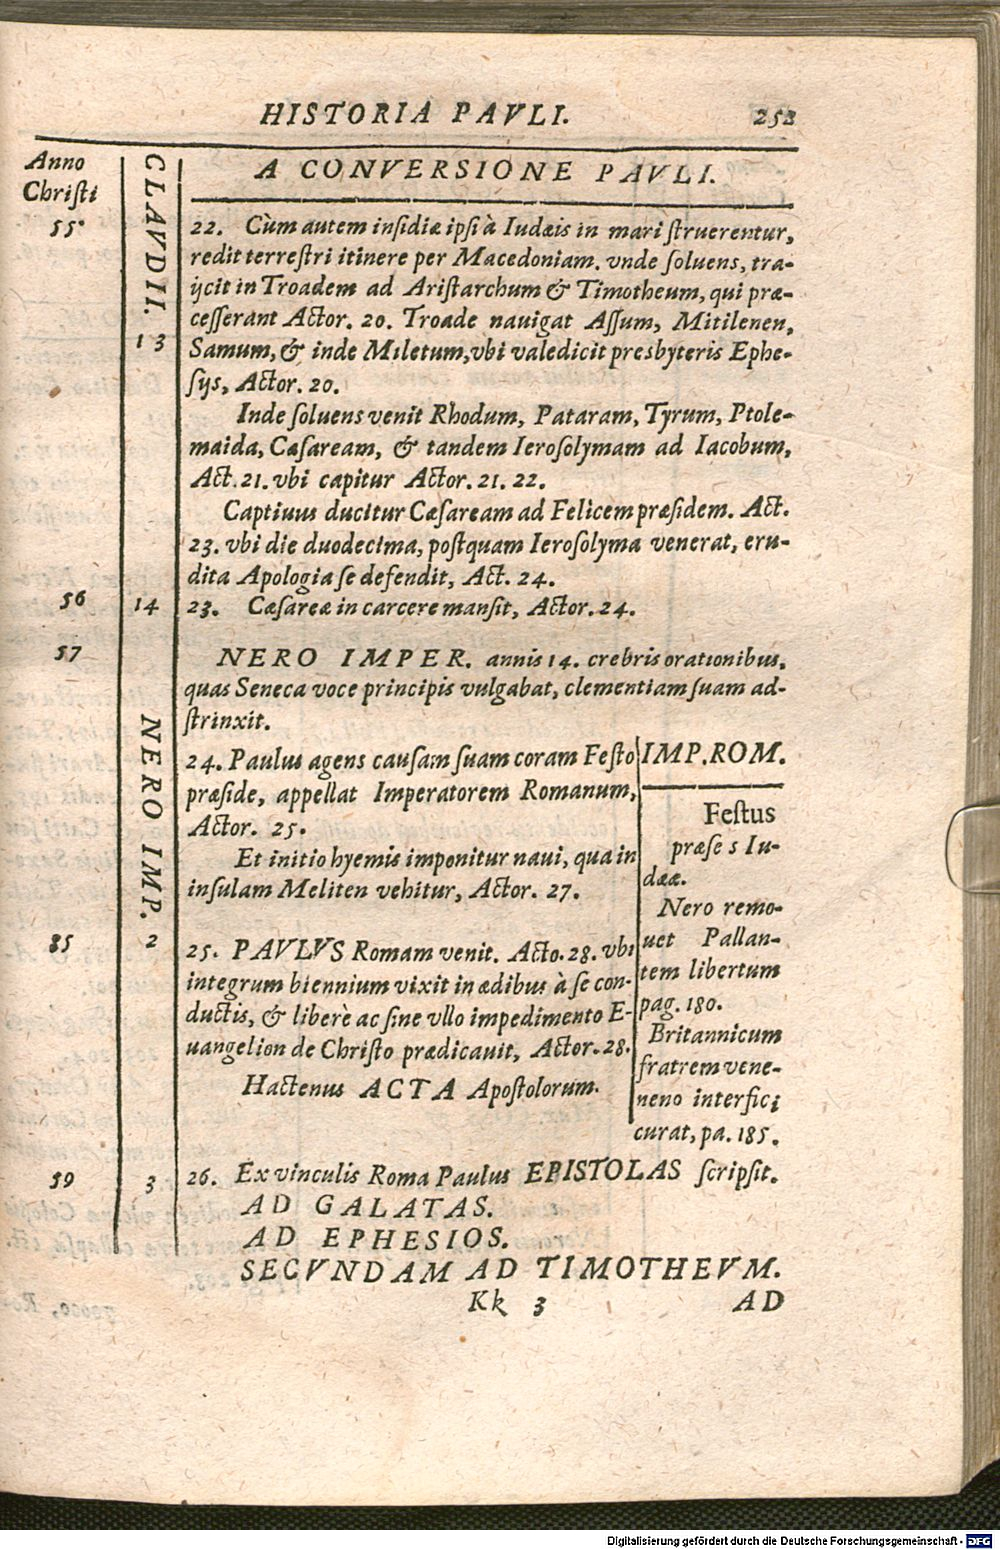 HISTORIA PAVLI. 252
Anno
Christi
CLAVDII.
A CONVERSIONE PAVLI.
55
22. Cùm autem insidiæ ipsi à Iudæis in mari struerentur,
redit terrestri itinere per Macedoniam. vnde soluens, tra-
ijcit in Troadem ad Aristarchum & Timotheum, qui præ-
cesserant Actor. 20. Troade nauigat Assum, Mitilenen,
13 Samum, & inde Miletum, vbi valedicit presbyteris Ephe-
sijs, Actor. 20.
Inde soluens venit Rhodum, Pataram, Tyrum, Ptole-
maida, Cæsaream, & tandem Ierosolymam ad Iacobum,
Act. 21. vbi capitur Actor. 21. 22.
Captiuus ducitur Cæsaream ad Felicem præsidem. Act.
23. vbi die duodecima, postquam Ierosolyma venerat, eru-
dita Apologia se defendit, Act. 24.
56 14 23. Cæsareæ in carcere mansit, Actor. 24.
57 NERO IMPER. annis 14. crebris orationibus,
quas Seneca voce principis vulgabat, clementiam suam ad-
strinxit.
NERO IMP.
24. Paulus agens causam suam coram Festo
præside, appellat Imperatorem Romanum,
Actor. 25.
Et initio hyemis imponitur naui, qua in
insulam Meliten vehitur, Actor. 27.
85 2 25. PAVLVS Romam venit. Acto. 28. vbi
integrum biennium vixit in ædibus à se con-
ductis, & liberè ac sine vllo impedimento E-
uangelion de Christo prædicauit, Actor. 28.
Hactenus ACTA Apostolorum.
IMP. ROM.
Festus
præse s Iu-
dææ.
Nero remo-
uet Pallan-
tem libertum
pag. 180.
Britannicum
fratrem vene-
neno interfici
curat, pa. 185.
59 3 26. Ex vinculis Roma Paulus EPISTOLAS scripsit.
AD GALATAS.
AD EPHESIOS.
SECVNDAM AD TIMOTHEVM.
Kk 3 AD
Digitalisierung gefördert durch die Deutsche Forschungsgemeinschaft - DFG